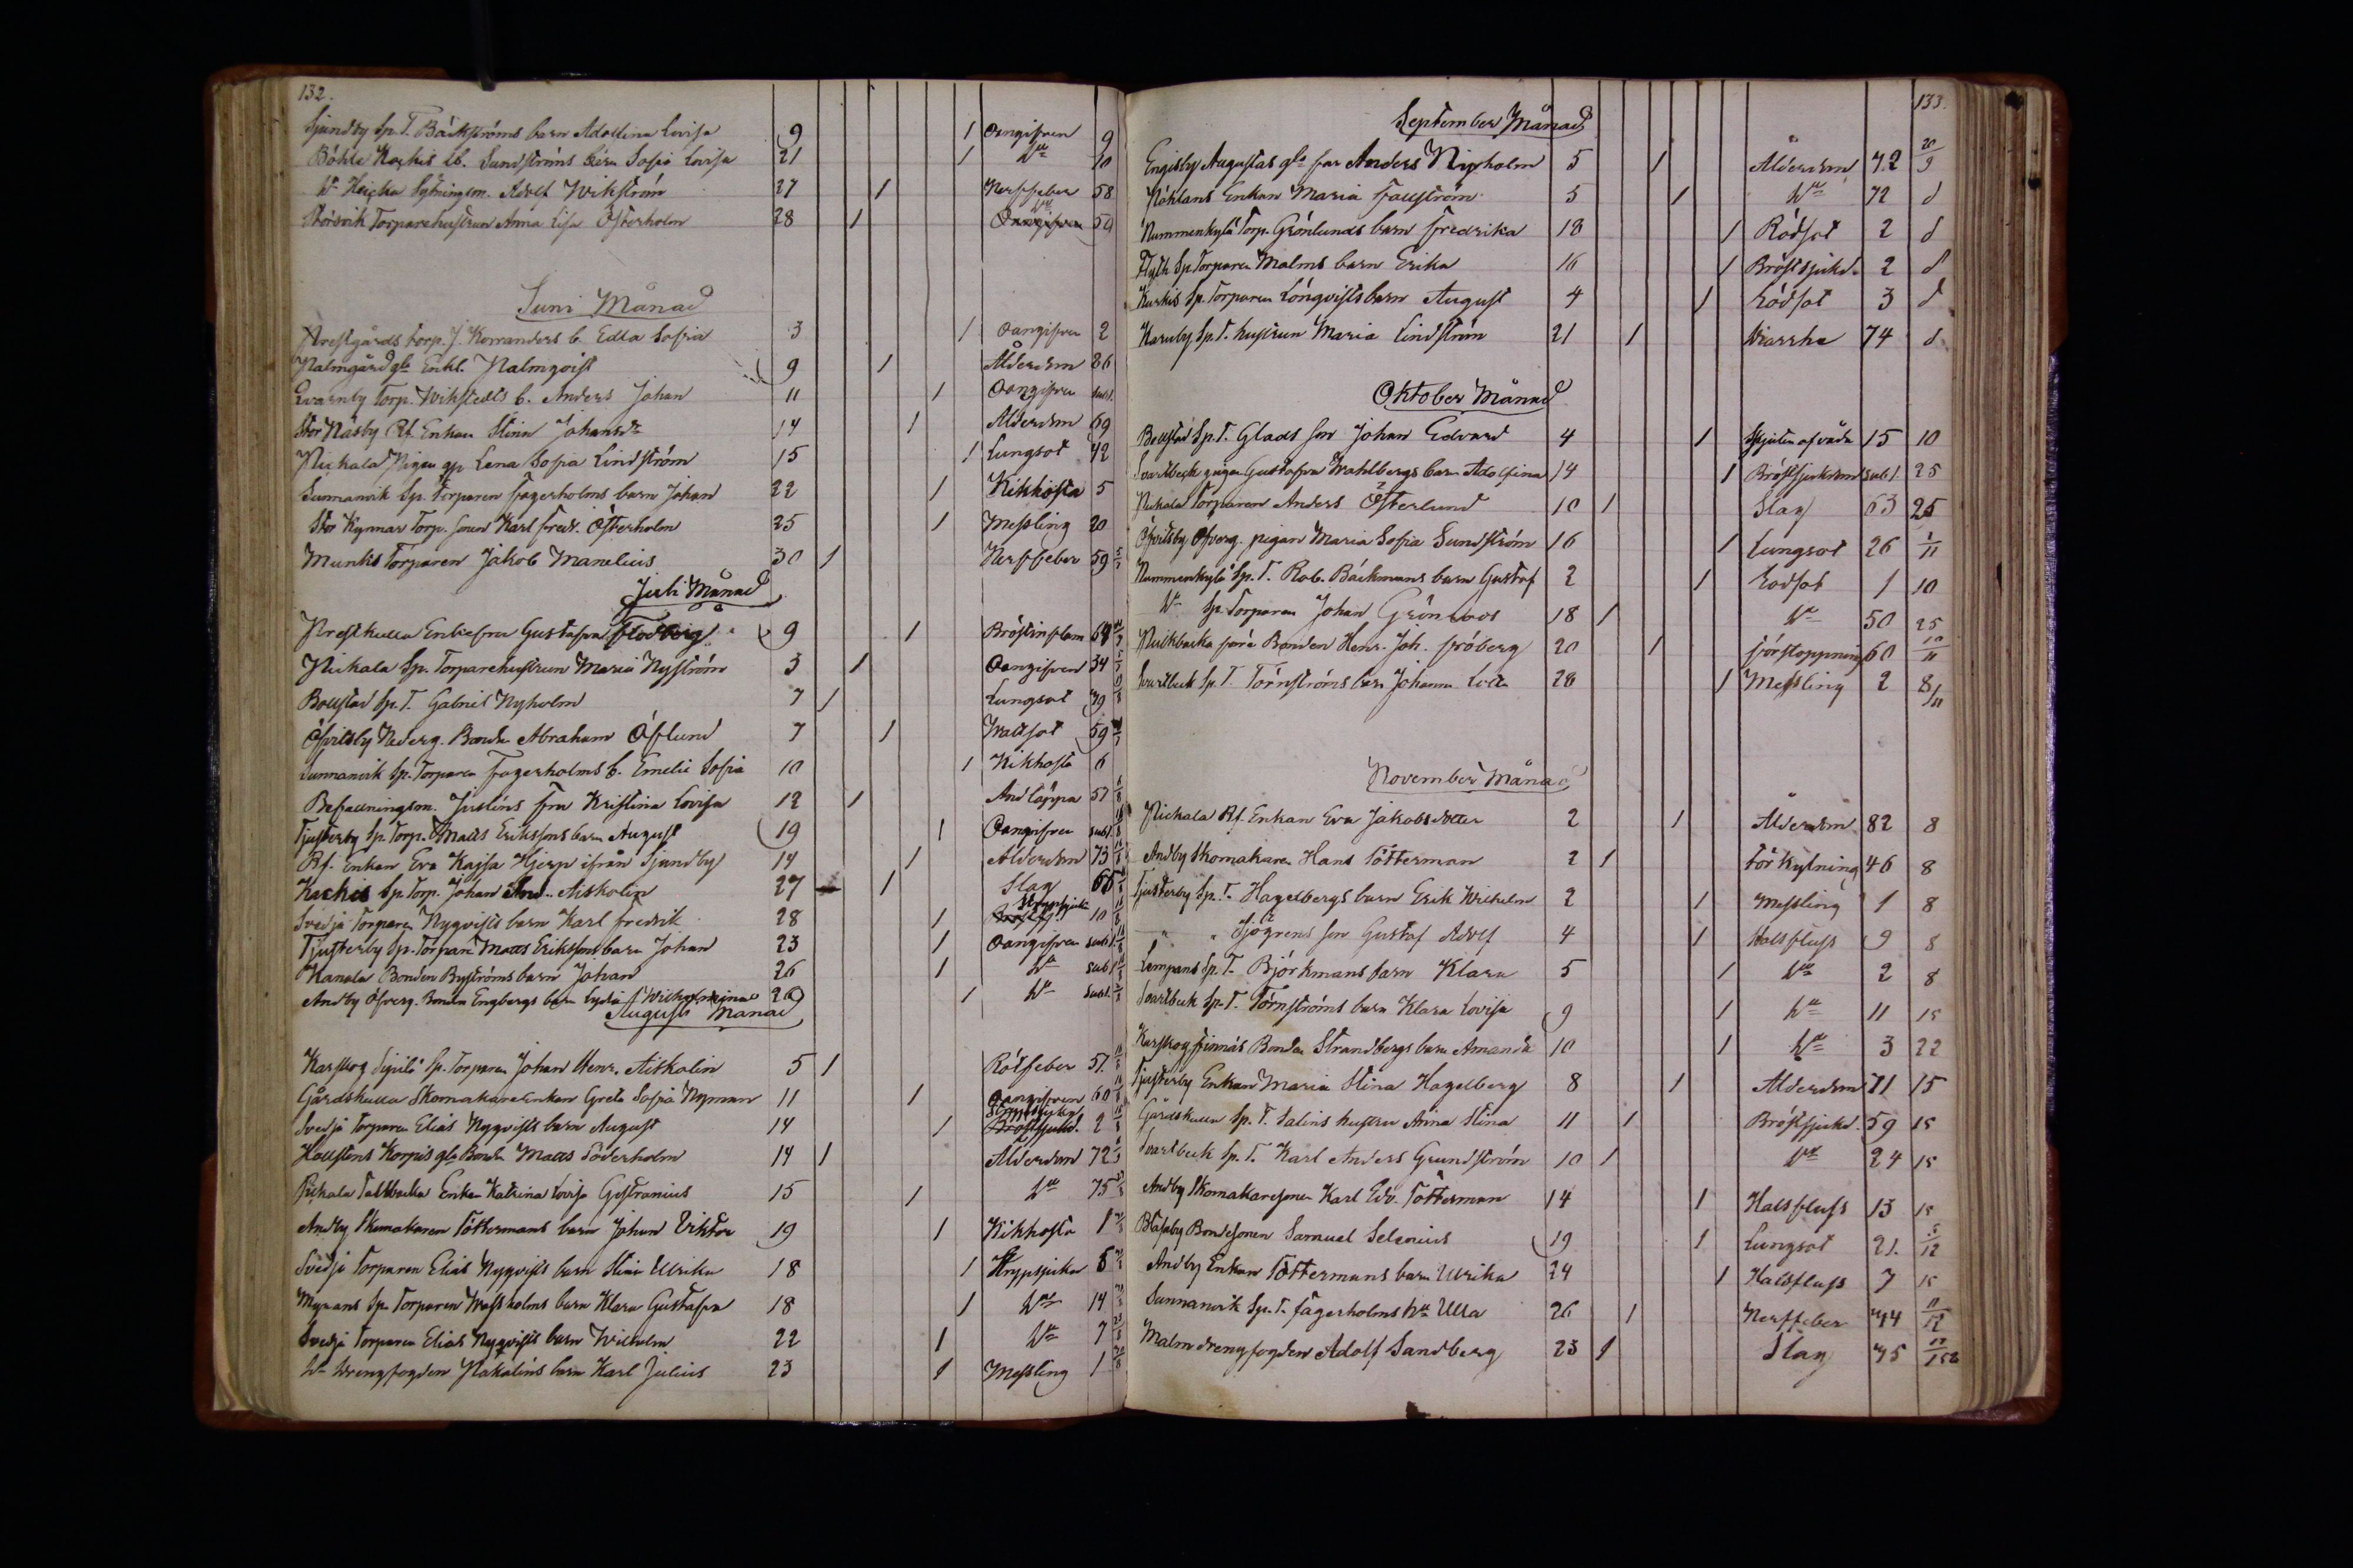 132.
Sjundby Sp. T. Bäckströms barn Adolfina Lovisa 9 1 Oangifven 9
Böhle Kackis Lb. Sundströms Sofia Lovisa 21 1 Do 10
Do Adolf Wikström 27 1 Nerffeber 58
Störsvik Torparehustrun Anna Lisa Österholm 28 1 Do 50
Juni Månad
Prestgårds torp. J. Korranders b. Edla Sofia 3 1 Oangifven 2
Malmgård Enkl. Malmqvist 9 1 Ålderdm 86
Qvarnby Torp. Wikstedts b. Anders Johan 11 1 Oangifven
Stor Näsby Rf. Enkan Stina Johansdr 14 1 Ålderdm 69
Pickala Pigan Lena Sofia Lindström 15 1 Lungsot 42
Sunnanvik Sp. Torparen Fagerholms barn Johan 22 1 Kikhosta 5
Stor Kyrmar Torp. sonen Karl Fredr. Österholm 25 1 Messling 20
Munks Torparen Jakob Manelius 30 1 Nerffeber 59
Juli Månad
Prestkulla Enkefru Gustafva Flodberg 9 1 Bröstinflam
Pickala Sp. Torparehustrun Maria Nyström 3 1 Oangifven 34
Bollstad Sp. T. Gabriel Nyholm 7 1 Lungsot 39
Öfvitsby Nederg. Bonden Abraham Öflund 7 1 Wattsot 59
Sunnanvik Sp. Torparen Fagerholms b. Emelie Sofia 10 1 Kikhosta 6
Befallningsm. Juslins fru Kristina Lovisa 12 1 Andtäppa 51
Tjusterby Sp. Torp. Matts Erikssons barn August 19 1 Oangifven
Rf. Enkan Eva Kajsa Hjerp ifrån Sjundby 14 1 Ålderdm 73
Kackis Sp. Torp. Johan And. Aiskolin 27 1 Slag 66
Svedja Torparen Nyqvists barn Karl Fredrik 28 1 Strypsjuka 10
Tjusterby Sp. Torparen Matts Erikssons barn Johan 23 1 Oangifven
Kanala Bonden Byströms barn Johan 26 1 Do
Andby Öfverg. Bonden Engbergs barn Lydia Wilhelmina 26 1 Do
Augusti Månad
Karskog Sp. Torparen Johan Henr. Aiskolin 5 1 Rötfeber 51
Gårdskulla Skomakareenkan Greta Sofia Nyman 11 1 Oangifven 60
Svedja Torparen Elias Nyqvists barn August 14 1 Strypsjuka 2
Hollstens Korpis Bonden Matts Söderholm 14 1 Ålderdm 72
Pickala Tallbacka Enkan Katrina Lovisa Gestranius 15 1 Do 75
Andby Skomakaren Töttermans barn Johan Viktor 19 1 Kikhosta 1
Svedja Torparen Elias Nyqvists barn Stina Ulrika 18 1 Strypsjuka 5
Myrans Sp. Torparen Wassholms barn Klara Gustafva 18 1 Do 14
Svedja Torparen Elias Nyqvists barn Wilhelm 22 1 Do 7
Do Drengfogden Nakalins barn Karl Julius 23 1 Messling 1
133.
September Månad
Engisby Augustas far Anders Nyholm 5 1 Ålderdm 72 20/9
Påhlans Enkan Maria Fallström 5 1 Do 72 d
Nummenkylä Torp. Grönlunds barn Fredrika 18 1 Rödsot 2 d
Flyth Sp. Torparen Malms barn Erika 16 1 Bröstsjukd. 2 d
Kurkis Sp. Torparen Lönqvists barn August 4 1 Rödsot 3 d
Karuby Sp. T. hustrun Maria Lindström 21 1 Diarrhe 74 d
Oktober Månad
Bollstad Sp. T. Glads son Johan Edvard 4 1 Skjuten af våda 15 10
Svartbeck pigan Gustafva Wahlbergs barn Adolfina 14 1 Bröstsjukdm 25
Pickala Torparen Anders Österlund 10 1 Slag 63 25
Öfvitsby Öfverg. pigan Maria Sofia Sundström 16 1 Lungsot 26 1/11
Nummenkylä Sp. T. Rob. Bäckmans barn Gustaf 2 1 Rodsot 1 10
Do Sp. Torparen Johan Grönroos 18 1 Do 50 25
Bonden Henr. Joh. Fröberg 20 1 Förstoppning 60 10/11
Svartbeck Sp. T. Törnströms barn Johanna Lotta 28 1 Messling 2 8/11
November Månad
Pickala Rf. Enkan Eva Jakobsdotter 2 1 Ålderdm 82 8
Andby Skomakaren Hans Tötterman 2 1 Förkylning 46 8
Tjusterby Sp. T. Hagelbergs barn Erik Wilhelm 2 1 Messling 1 8
" " Sjögrens son Gustaf Adolf 4 1 Halsfluss 9 8
Lempans Sp. T. Björkmans barn Klara 5 1 Do 2 8
Svartbeck Sp. T. Törnströms barn Klara Lovisa 9 1 Do 11 15
Karskog Finnäs Bonden Strandbergs barn Amanda 10 1 Do 3 22
Tjusterby Enkan Maria Stina Hagelberg 8 1 Ålderdm 71 15
Gårdskulla Sp. T. Salins hustru Anna Stina 11 1 Bröstsjukd. 59 15
Svartbeck Sp. T. Karl Anders Grundström 10 1 Do 24 15
Andby Skomakaresonen Karl Edv. Tötterman 14 1 Halsfluss 13 15
Bläsaby Bondesonen Samuel Selenius 19 1 Lungsot 21. 5/12
Andby Enkan Töttermans barn Ulrika 24 1 Halsfluss 7 15
Sunnanvik Sp. T. Fagerholms hu Ulla 26 1 Nerffeber 44 11/12
Malm drengfogden Adolf Sandberg 23 1 Slag 45